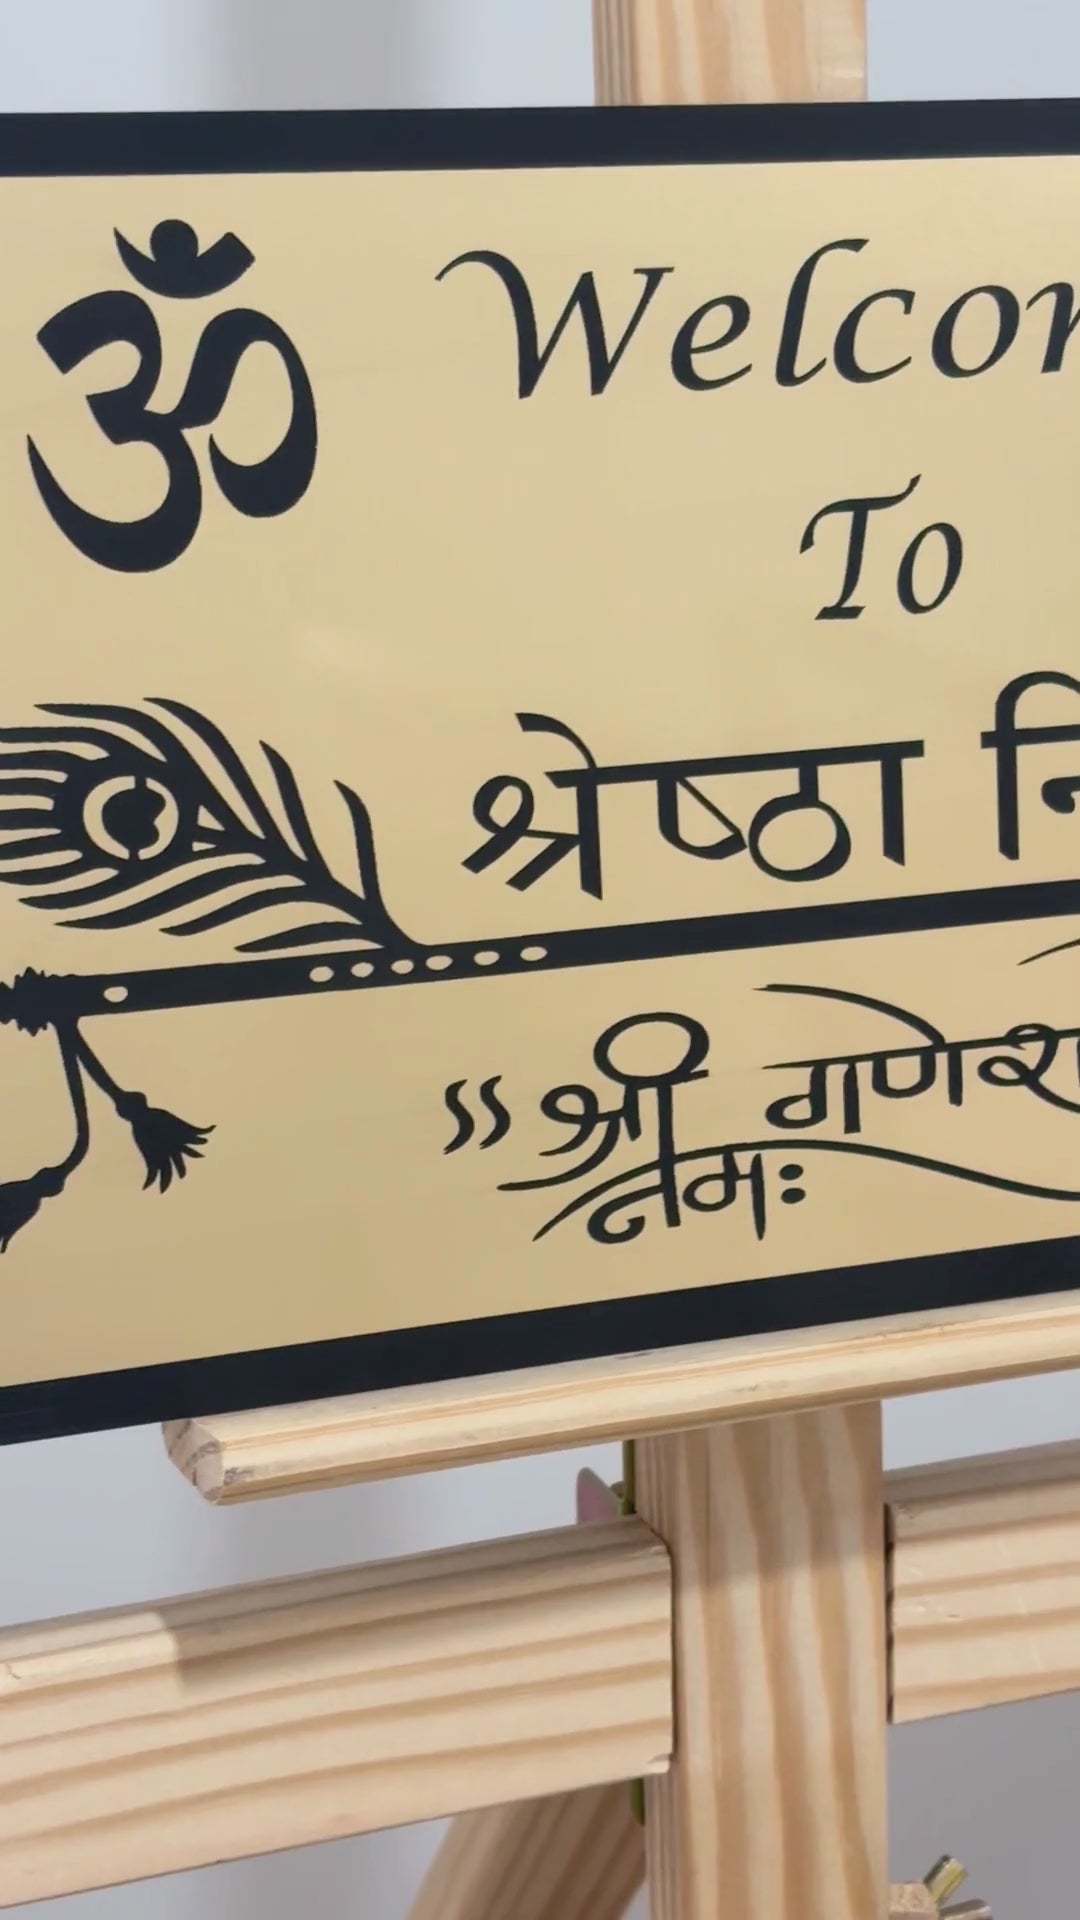 ॐ
Welcom
To
श्रेष्ठा नि
“श्री गणेशा
नमः